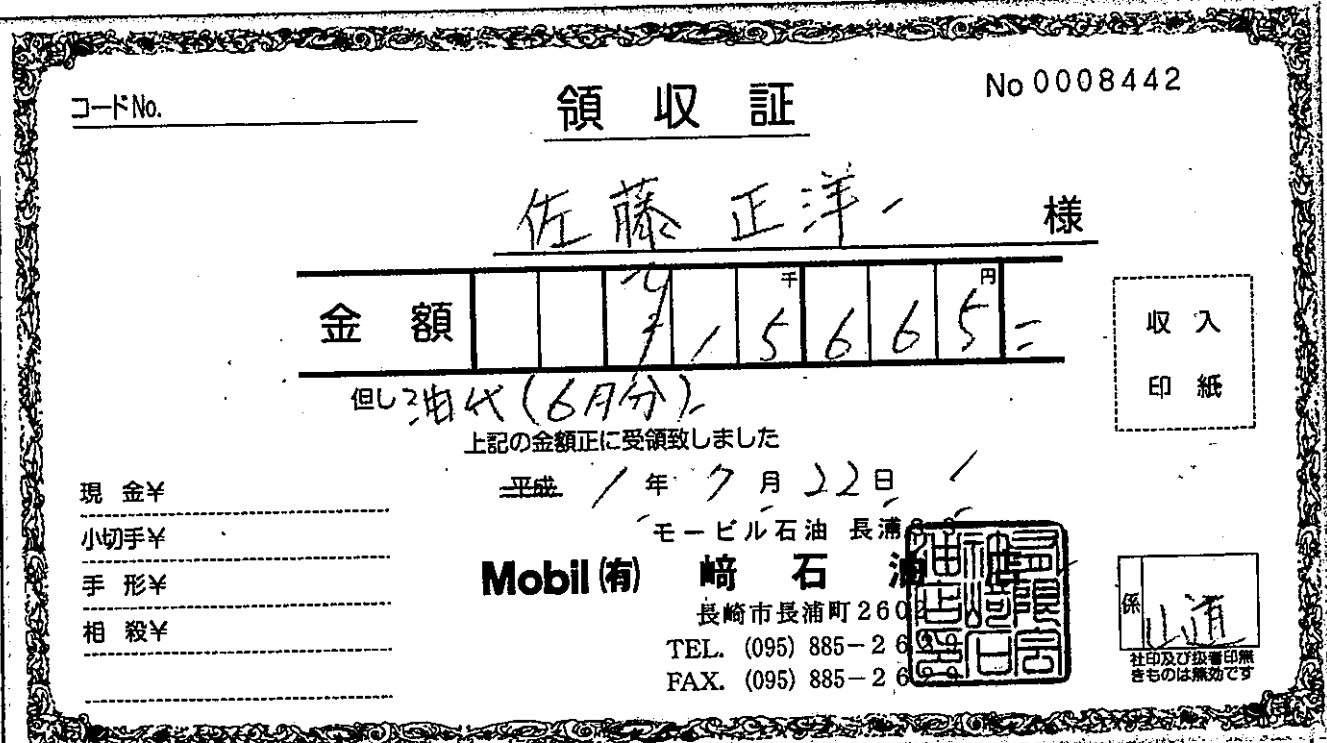 コードNo.
領収証
No 0008442
佐藤 正洋 様
金額 ¥15665=
千 円
但し 油代(6月分)
上記の金額正に受領致しました
平成 1年 7月 22日
収入
印紙
現 金¥
小切手¥
手 形¥
相 殺¥
モービル石油 長浦SS
Mobil (有) 﨑 石 油 店
長崎市長浦町2602
TEL. (095) 885-26
FAX. (095) 885-26
係 山道
社印及び扱者印無
きものは無効です